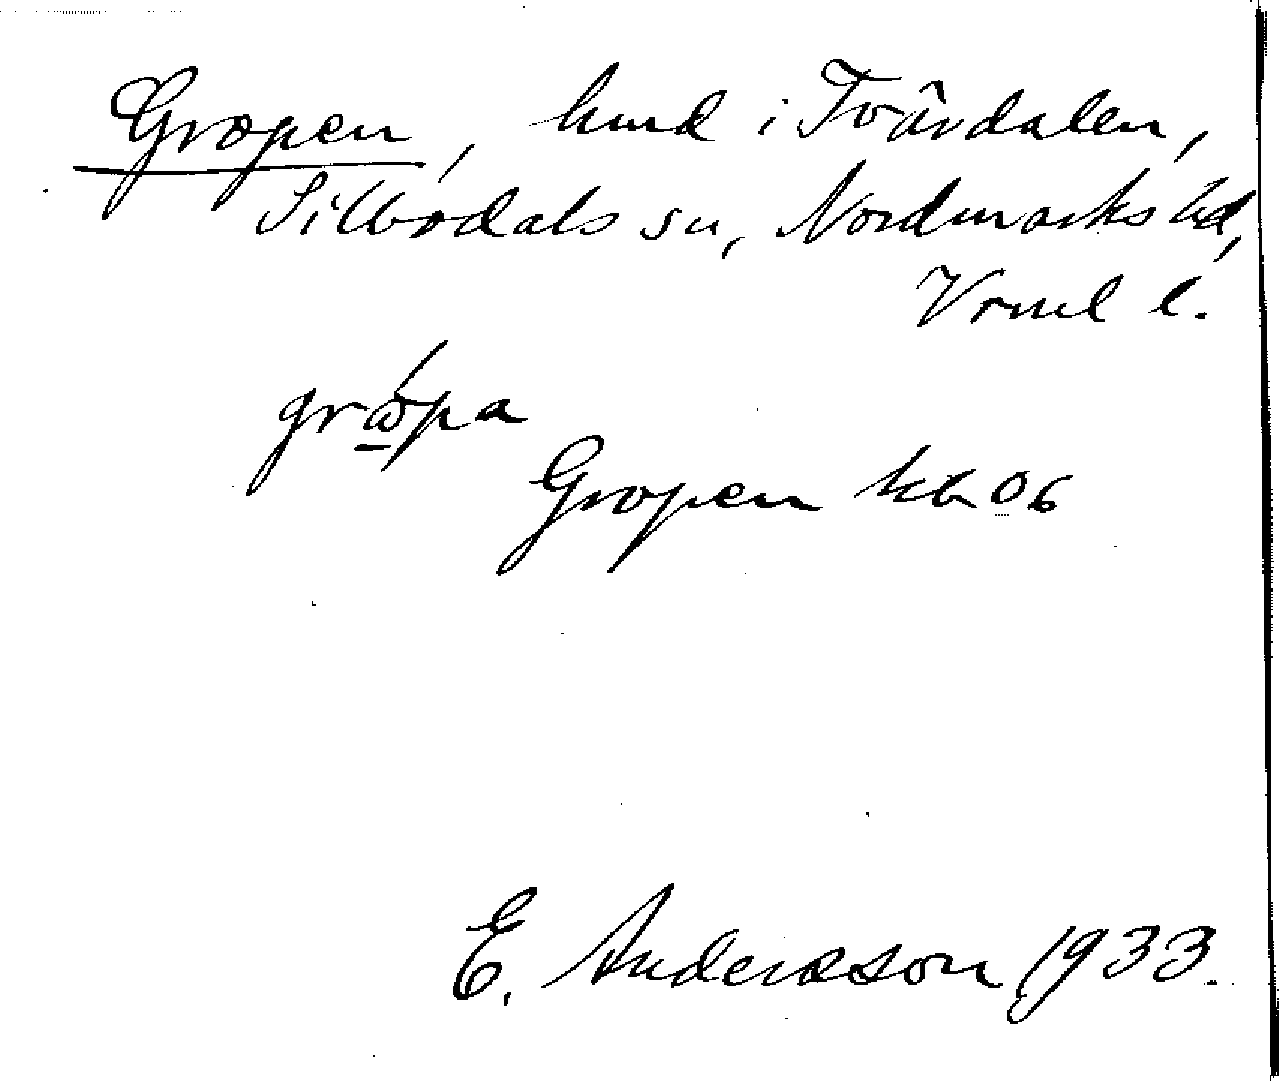 Gropen, hmd i Tvärdalen,
Silbodals sn, Nordmarks hd,
Vrml l.
grωpa
Gropen kb 06
E. Andersson 1933.